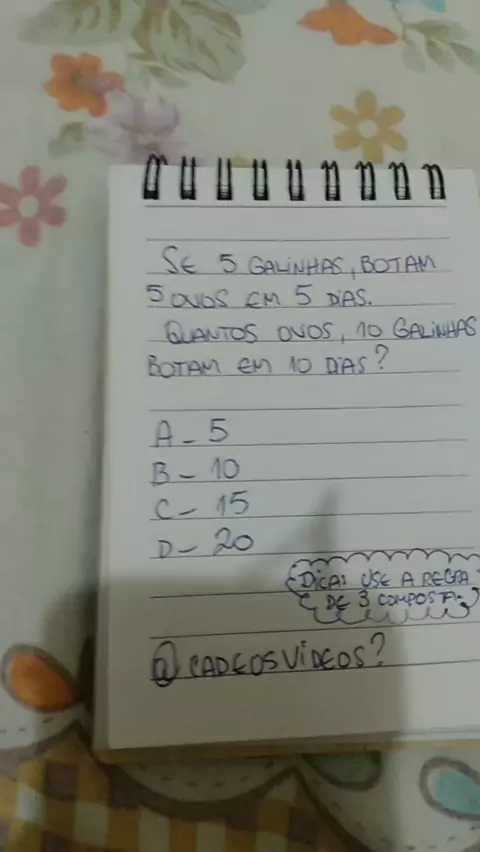 SE 5 GALINHAS, BOTAM
5 OVOS EM 5 DIAS.
QUANTOS OVOS, 10 GALINHAS
BOTAM EM 10 DIAS?
A - 5
B - 10
C - 15
D - 20
DICA: USE A REGRA
DE 3 COMPOSTA.
@CADEOSVÍDEOS?